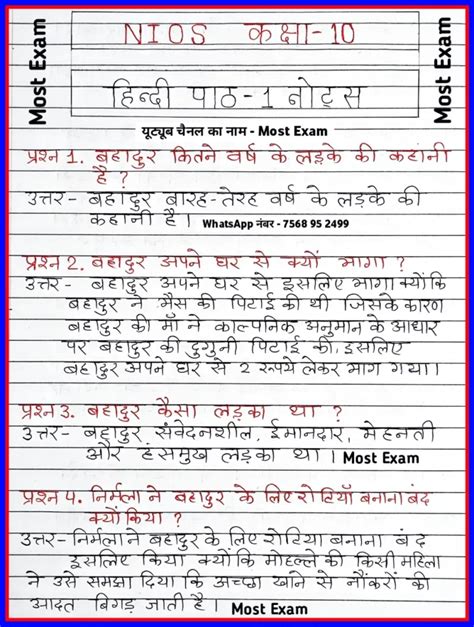 NIOS कक्षा-10
Most Exam
Most Exam
हिन्दी पाठ-1 नोट्स
यूट्यूब चैनल का नाम - Most Exam
प्रश्न 1. बहादुर कितने वर्ष के लड़के की कहानी
है ?
उत्तर- बहादुर बारह-तेरह वर्ष के लड़के की
कहानी है । WhatsApp नंबर - 7568 95 2499
प्रश्न 2. बहादुर अपने घर से क्यों भागा ?
उत्तर- बहादुर अपने घर से इसलिए भागा क्योंकि
बहादुर ने भैंस की पिटाई की थी जिसके कारण
बहादुर की माँ ने काल्पनिक अनुमान के आधार
पर बहादुर की दुगुनी पिटाई की, इसलिए
बहादुर अपने घर से 2 रुपये लेकर भाग गया।
प्रश्न 3. बहादुर कैसा लड़का था ?
उत्तर- बहादुर संवेदनशील, ईमानदार, मेहनती
और हंसमुख लड़का था । Most Exam
प्रश्न 4. निर्मला ने बहादुर के लिए रोटियाँ बनाना बंद
क्यों किया ?
उत्तर- निर्मला ने बहादुर के लिए रोटिया बनाना बंद
इसलिए किया क्योंकि मोहल्ले की किसी महिला
ने उसे समझा दिया कि अच्छा खाने से नौकरों की
आदत बिगड़ जाती है । Most Exam